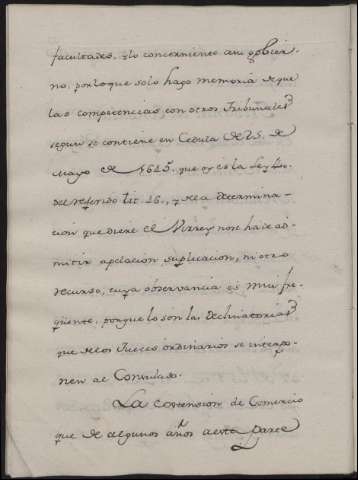 facultades, y lo concerniente a su gobier-
no, por lo que solo hago memoria de que
las competencias con otros Tribunales
segun se contiene en Cedula de 25. de
Mayo de 1645. que oy es la Ley
del referido tit. 46., y de la determina-
cion que diere el Virrey no se ha de ad-
mitir apelacion suplicacion, ni otro
recurso, cuya observancia es mui fre-
qüente, porque lo son las declinatorias
que de los Jueces ordinarios se interpo-
nen al Consulado.
La extension de Comercio
que de algunos años a esta parte